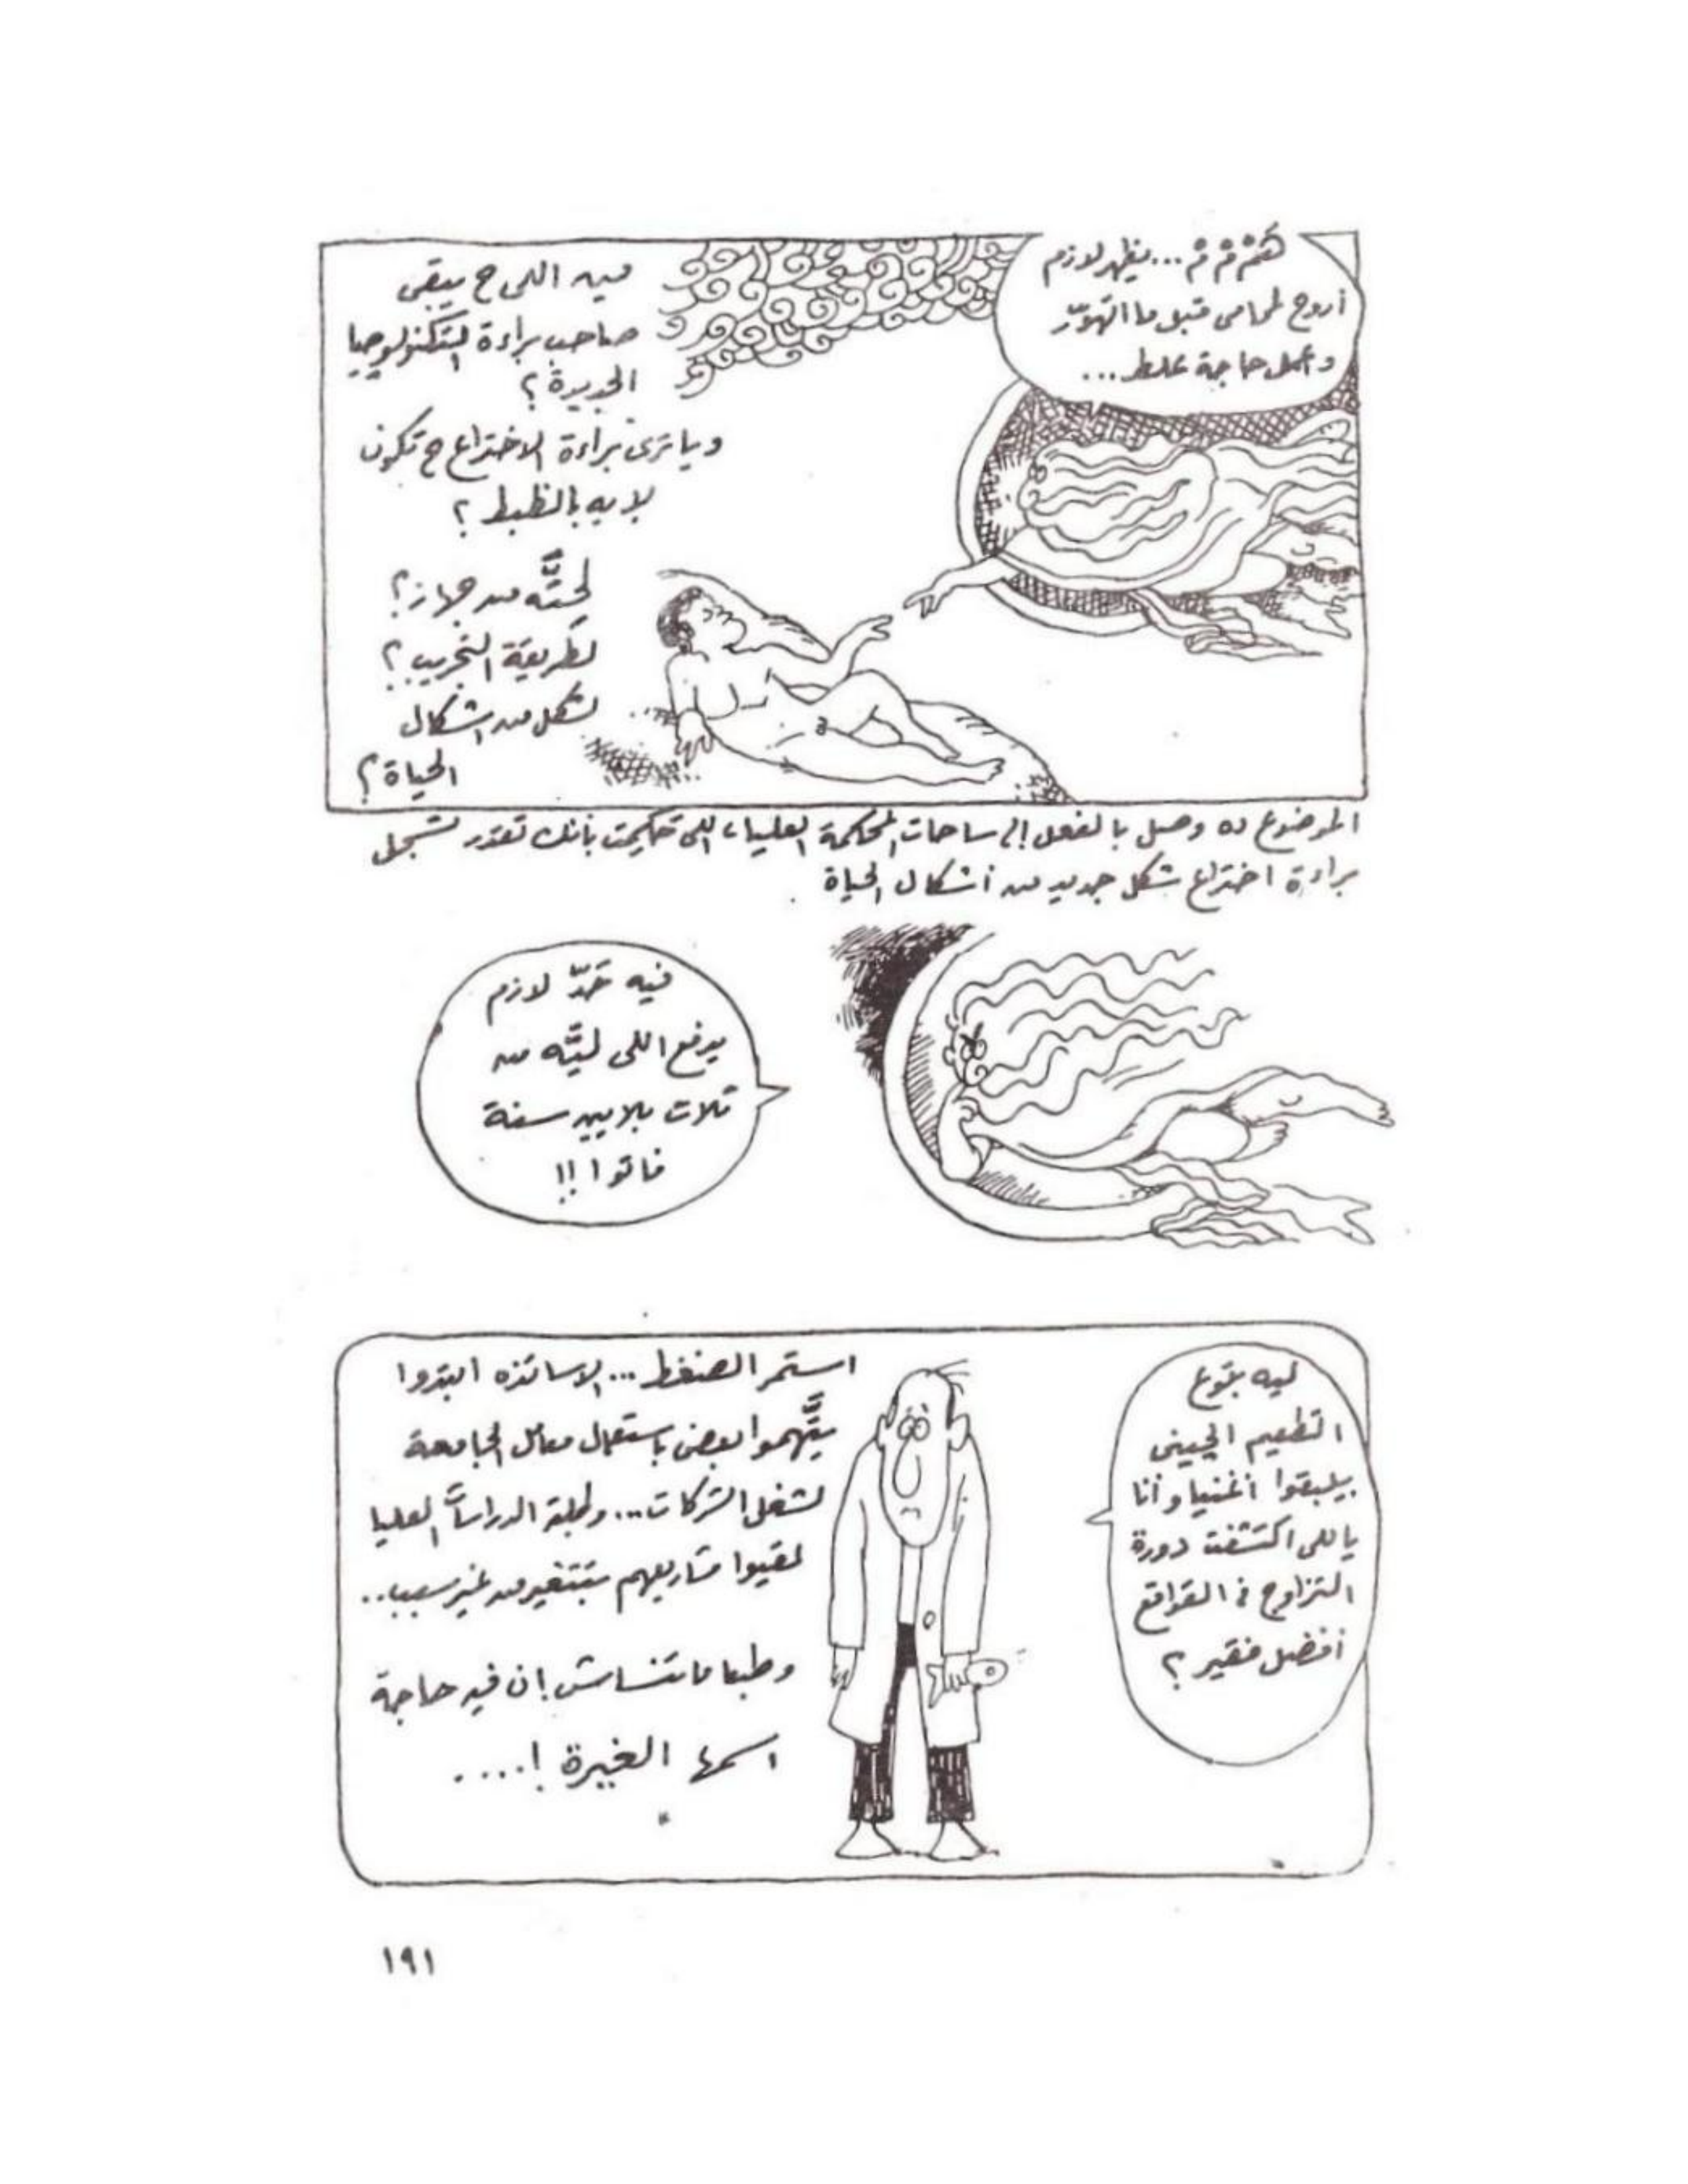 هَمْمْمْ... يظهر لازم
أروح لمحامى قبل ما اتهوّر
وأعمل حاجة غلط...
مين اللى ح يبقى
صاحب براءة التكنولوچيا
الجديدة؟
ويا ترى براءة الاختراع ح تكون
لإيه بالظبط؟
لحتّه من جهاز؟
لطريقة التجريب؟
لشكل من اشكال
الحياة؟
الموضوع ده وصل بالفعل إلى ساحات المحكمة العليا، اللى حكمت بإنك تقدر تسجل
براءة اختراع شكل جديد من أشكال الحياة.
فيه حَدّ لازم
يدفع اللى ليَّه من
تلات بلايين سنة
فاتوا!!
ليه بتوع
التطعيم الچينى
بيلبقوا أغنيا وأنا
ياللى اكتشفت دورة
التزاوج فى القواقع
أفضل فقير؟
استمر الضغط... الاساتذه ابتدوا
يتَّهموا بعض باستعمال معامل الجامعة
لشغل الشركات... وطلبة الدراسات العليا
لقيوا مشاريعهم بتتغير من غير سبب..
وطبعا ما تنساش إن فيه حاجة
اسمها الغيرة!....
١٩١